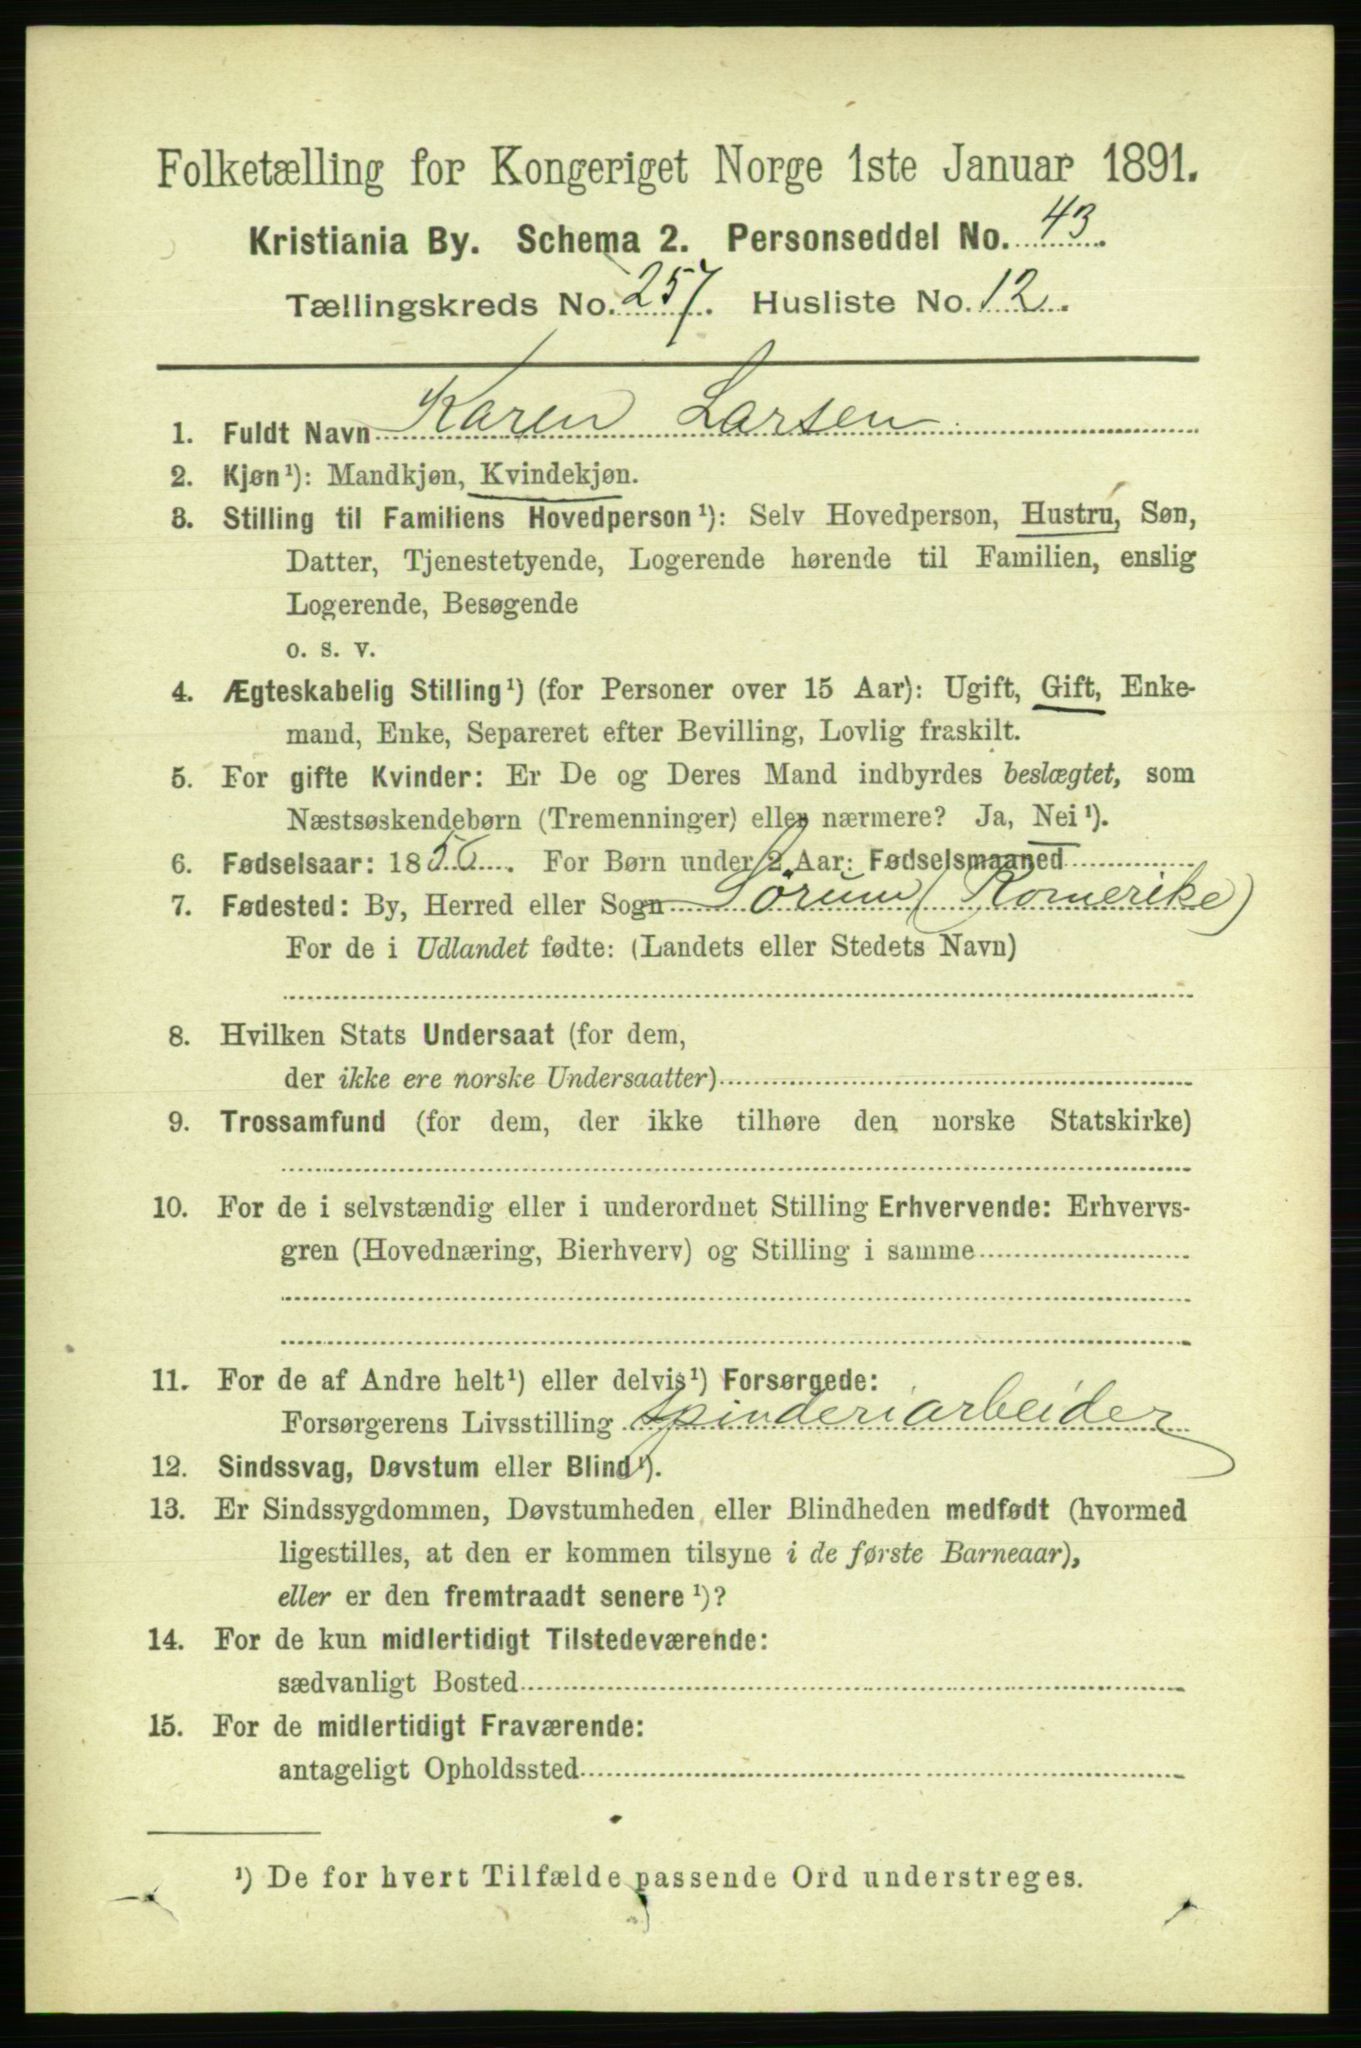 Folketælling for Kongeriget Norge 1ste Januar 1891.
Kristiania By. Schema 2. Personseddel No. 43.
Tællingskreds No. 257. Husliste No. 12.
1. Fuldt Navn Karen Larsen
2. Kjøn¹): Mandkjøn, Kvindekjøn.
3. Stilling til Familiens Hovedperson¹): Selv Hovedperson, Hustru, Søn,
Datter, Tjenestetyende, Logerende hørende til Familien, enslig
Logerende, Besøgende
o. s. v.
4. Ægteskabelig Stilling¹) (for Personer over 15 Aar): Ugift, Gift, Enke-
mand, Enke, Separeret efter Bevilling, Lovlig fraskilt.
5. For gifte Kvinder: Er De og Deres Mand indbyrdes beslægtet, som
Næstsøskendebørn (Tremenninger) eller nærmere? Ja, Nei¹).
6. Fødselsaar: 1856. For Børn under 2 Aar: Fødselsmaaned
7. Fødested: By, Herred eller Sogn Sørum (Romerike)
For de i Udlandet fødte: (Landets eller Stedets Navn)
8. Hvilken Stats Undersaat (for dem,
der ikke ere norske Undersaatter)
9. Trossamfund (for dem, der ikke tilhøre den norske Statskirke)
10. For de i selvstændig eller i underordnet Stilling Erhvervende: Erhvervs-
gren (Hovednæring, Bierhverv) og Stilling i samme
11. For de af Andre helt¹) eller delvis¹) Forsørgede:
Forsørgerens Livsstilling Spinderiarbeider
12. Sindssvag, Døvstum eller Blind¹).
13. Er Sindssygdommen, Døvstumheden eller Blindheden medfødt (hvormed
ligestilles, at den er kommen tilsyne i de første Barneaar),
eller er den fremtraadt senere¹)?
14. For de kun midlertidigt Tilstedeværende:
sædvanligt Bosted
15. For de midlertidigt Fraværende:
antageligt Opholdssted
¹) De for hvert Tilfælde passende Ord understreges.